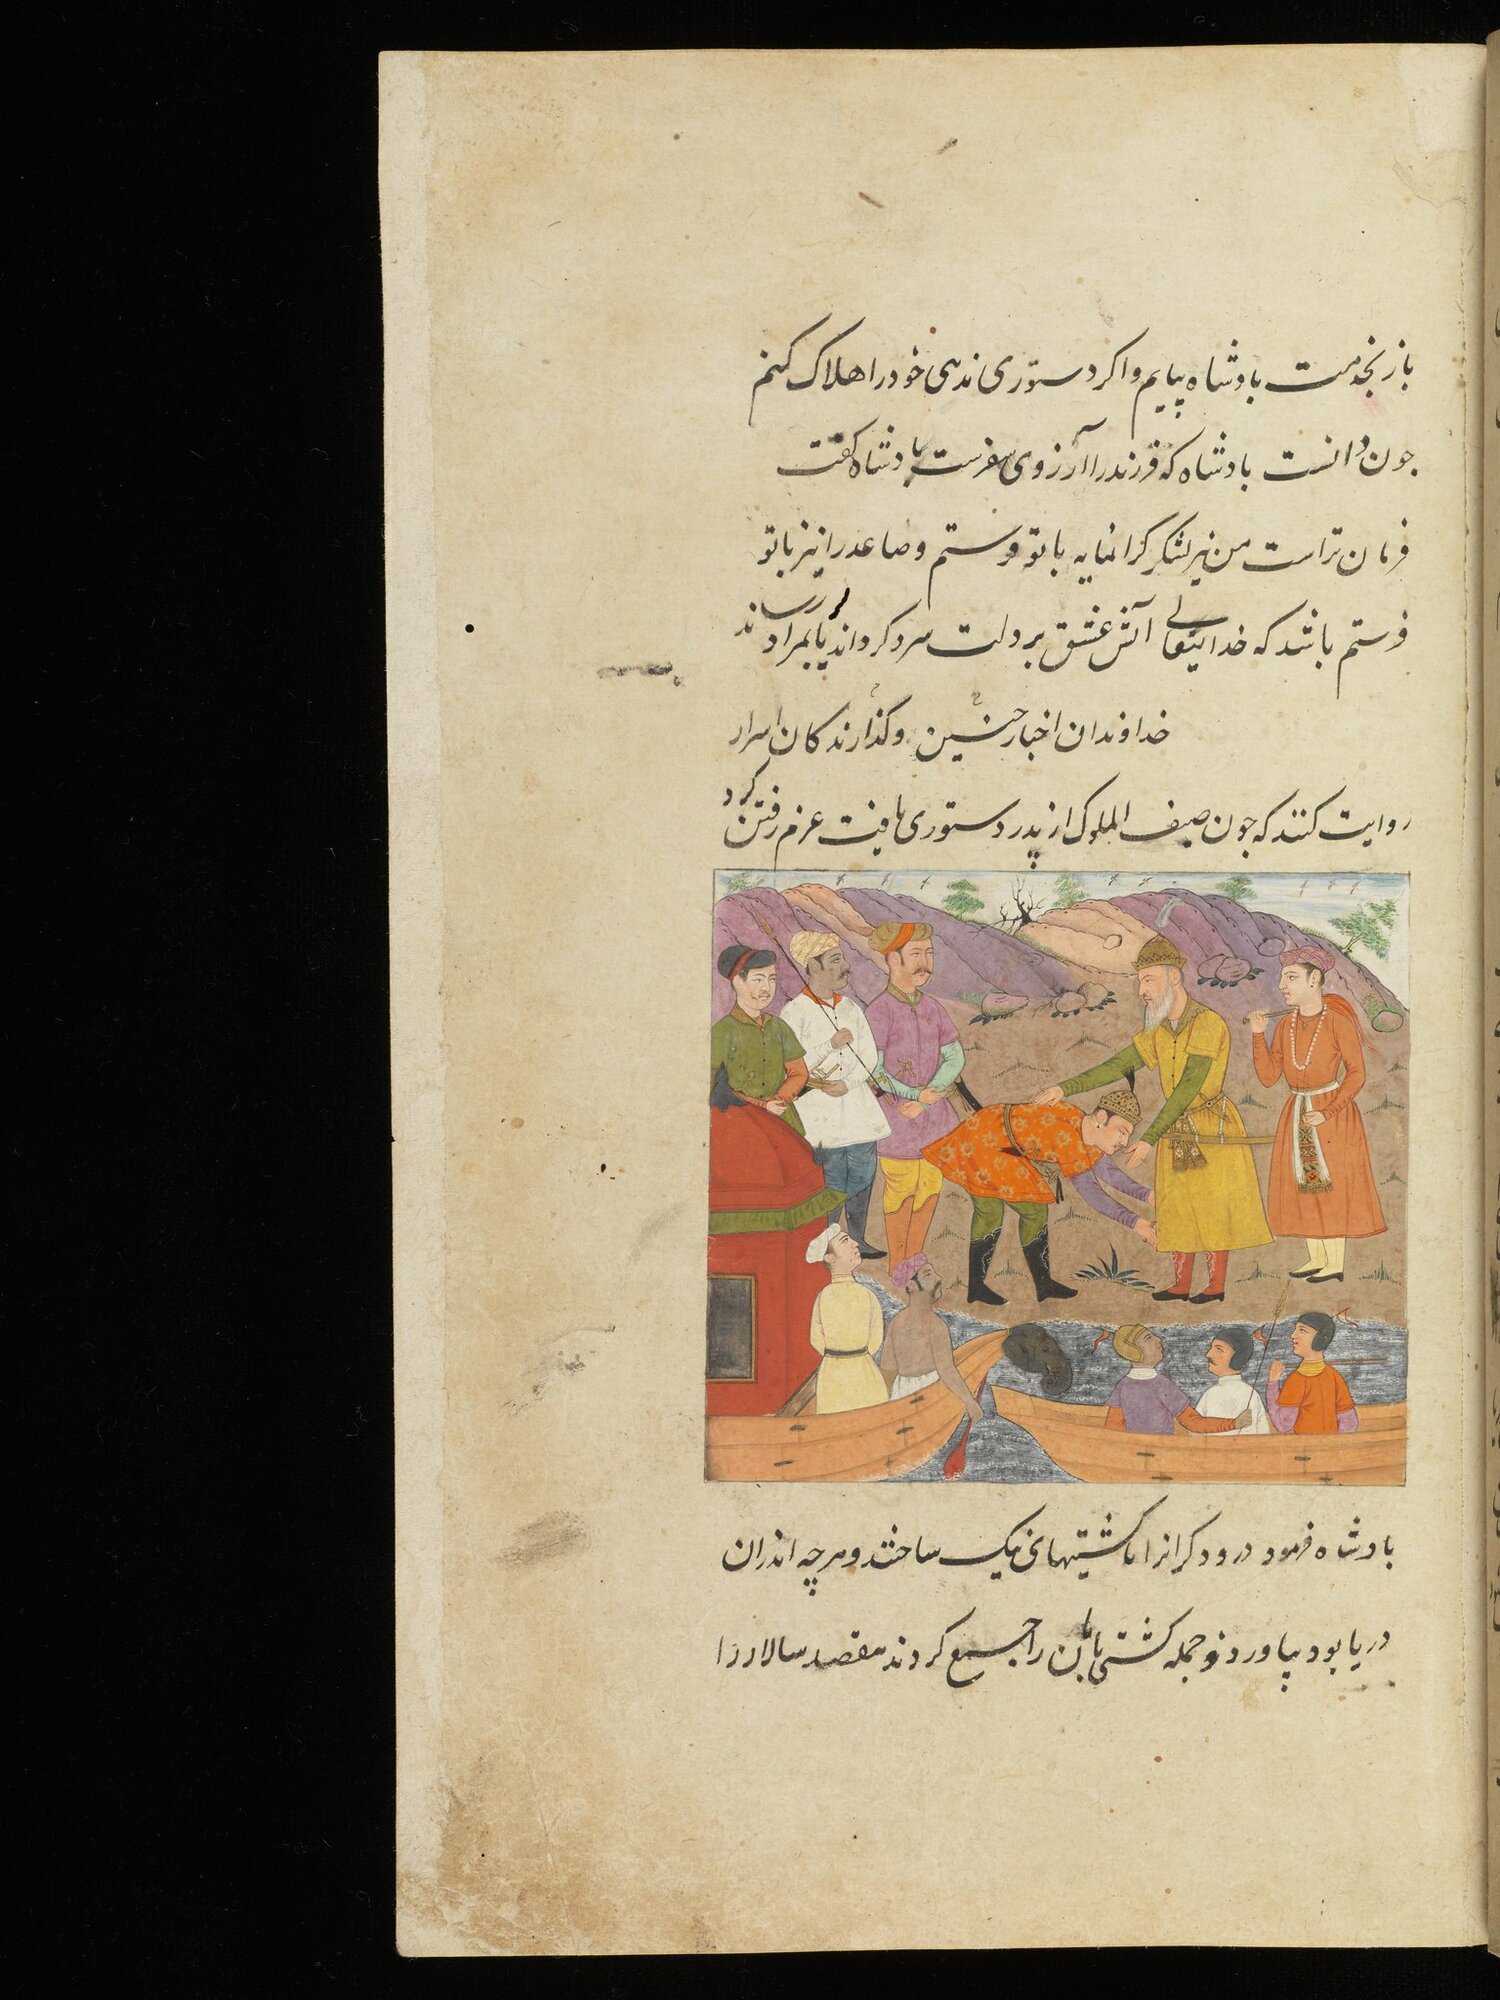 باز بخدمت بادشاه بیایم واکر دستوری ندهی خود را هلاک کنم
جون دانست بادشاه که فرزند را آرزوی سفرست بادشاه کفت
فرمان تراست من نیز لشکر کرانمایه با تو فرستم و صاعد را نیز با تو
فرستم باشد که خدایتعالی آتش عشق بر دلت سرد کرداند یا بمراد رساند
خداوندان اخبار جنین و گذارندکان اسرار
روایت کنند که جون صیف الملوک از پدر دستوری یافت عزم رفتن کرد
بادشاه فرمود درودکرانرا تا کشتیهای نیک ساختند و هرچه اندران
دریا بود بیاوردند و جمله کشتی بانان را جمع کردند مقصد سالار را